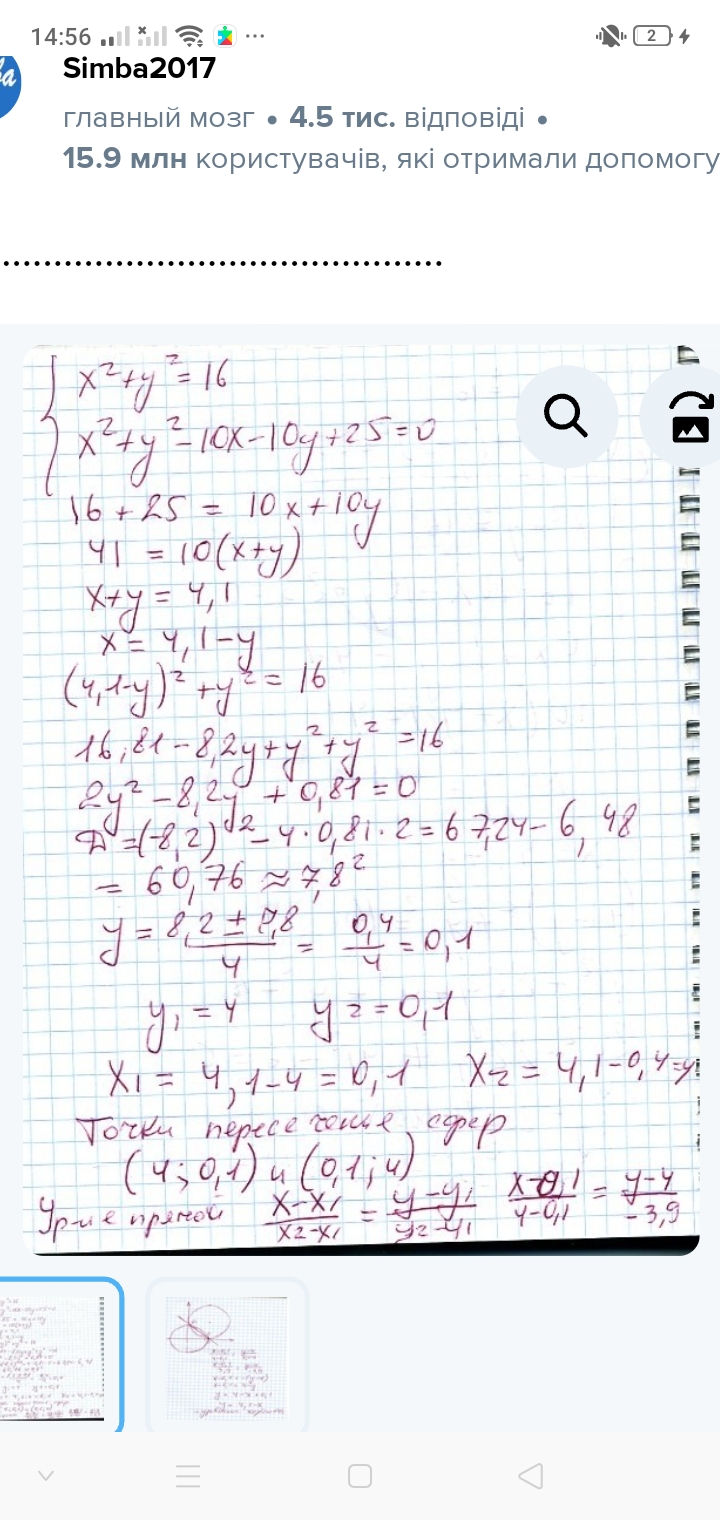 14:56
2
Simba2017
главный мозг • 4.5 тис. відповіді •
15.9 млн користувачів, які отримали допомогу
...........................................
x²+y²=16
x²+y²-10x-10y+25=0
16+25 = 10x+10y
41 = 10(x+y)
x+y = 4,1
x = 4,1-y
(4,1-y)² +y² = 16
16,81-8,2y+y²+y² =16
2y²-8,2y + 0,81=0
D=(-8,2)²-4·0,81·2=67,24-6,48
= 60,76 ≈ 7,8²
y = (8,2 ± 7,8)/4 = 0,4/4 = 0,1
y₁ = 4 y₂ = 0,1
x₁ = 4,1-4 = 0,1 x₂ = 4,1-0,4=4
Точки пересечение сфер
(4; 0,1) и (0,1; 4)
Ур-ие прямой (x-x₁)/(x₂-x₁) = (y-y₁)/(y₂-y₁) (x-0,1)/(4-0,1) = (y-4)/(-3,9)